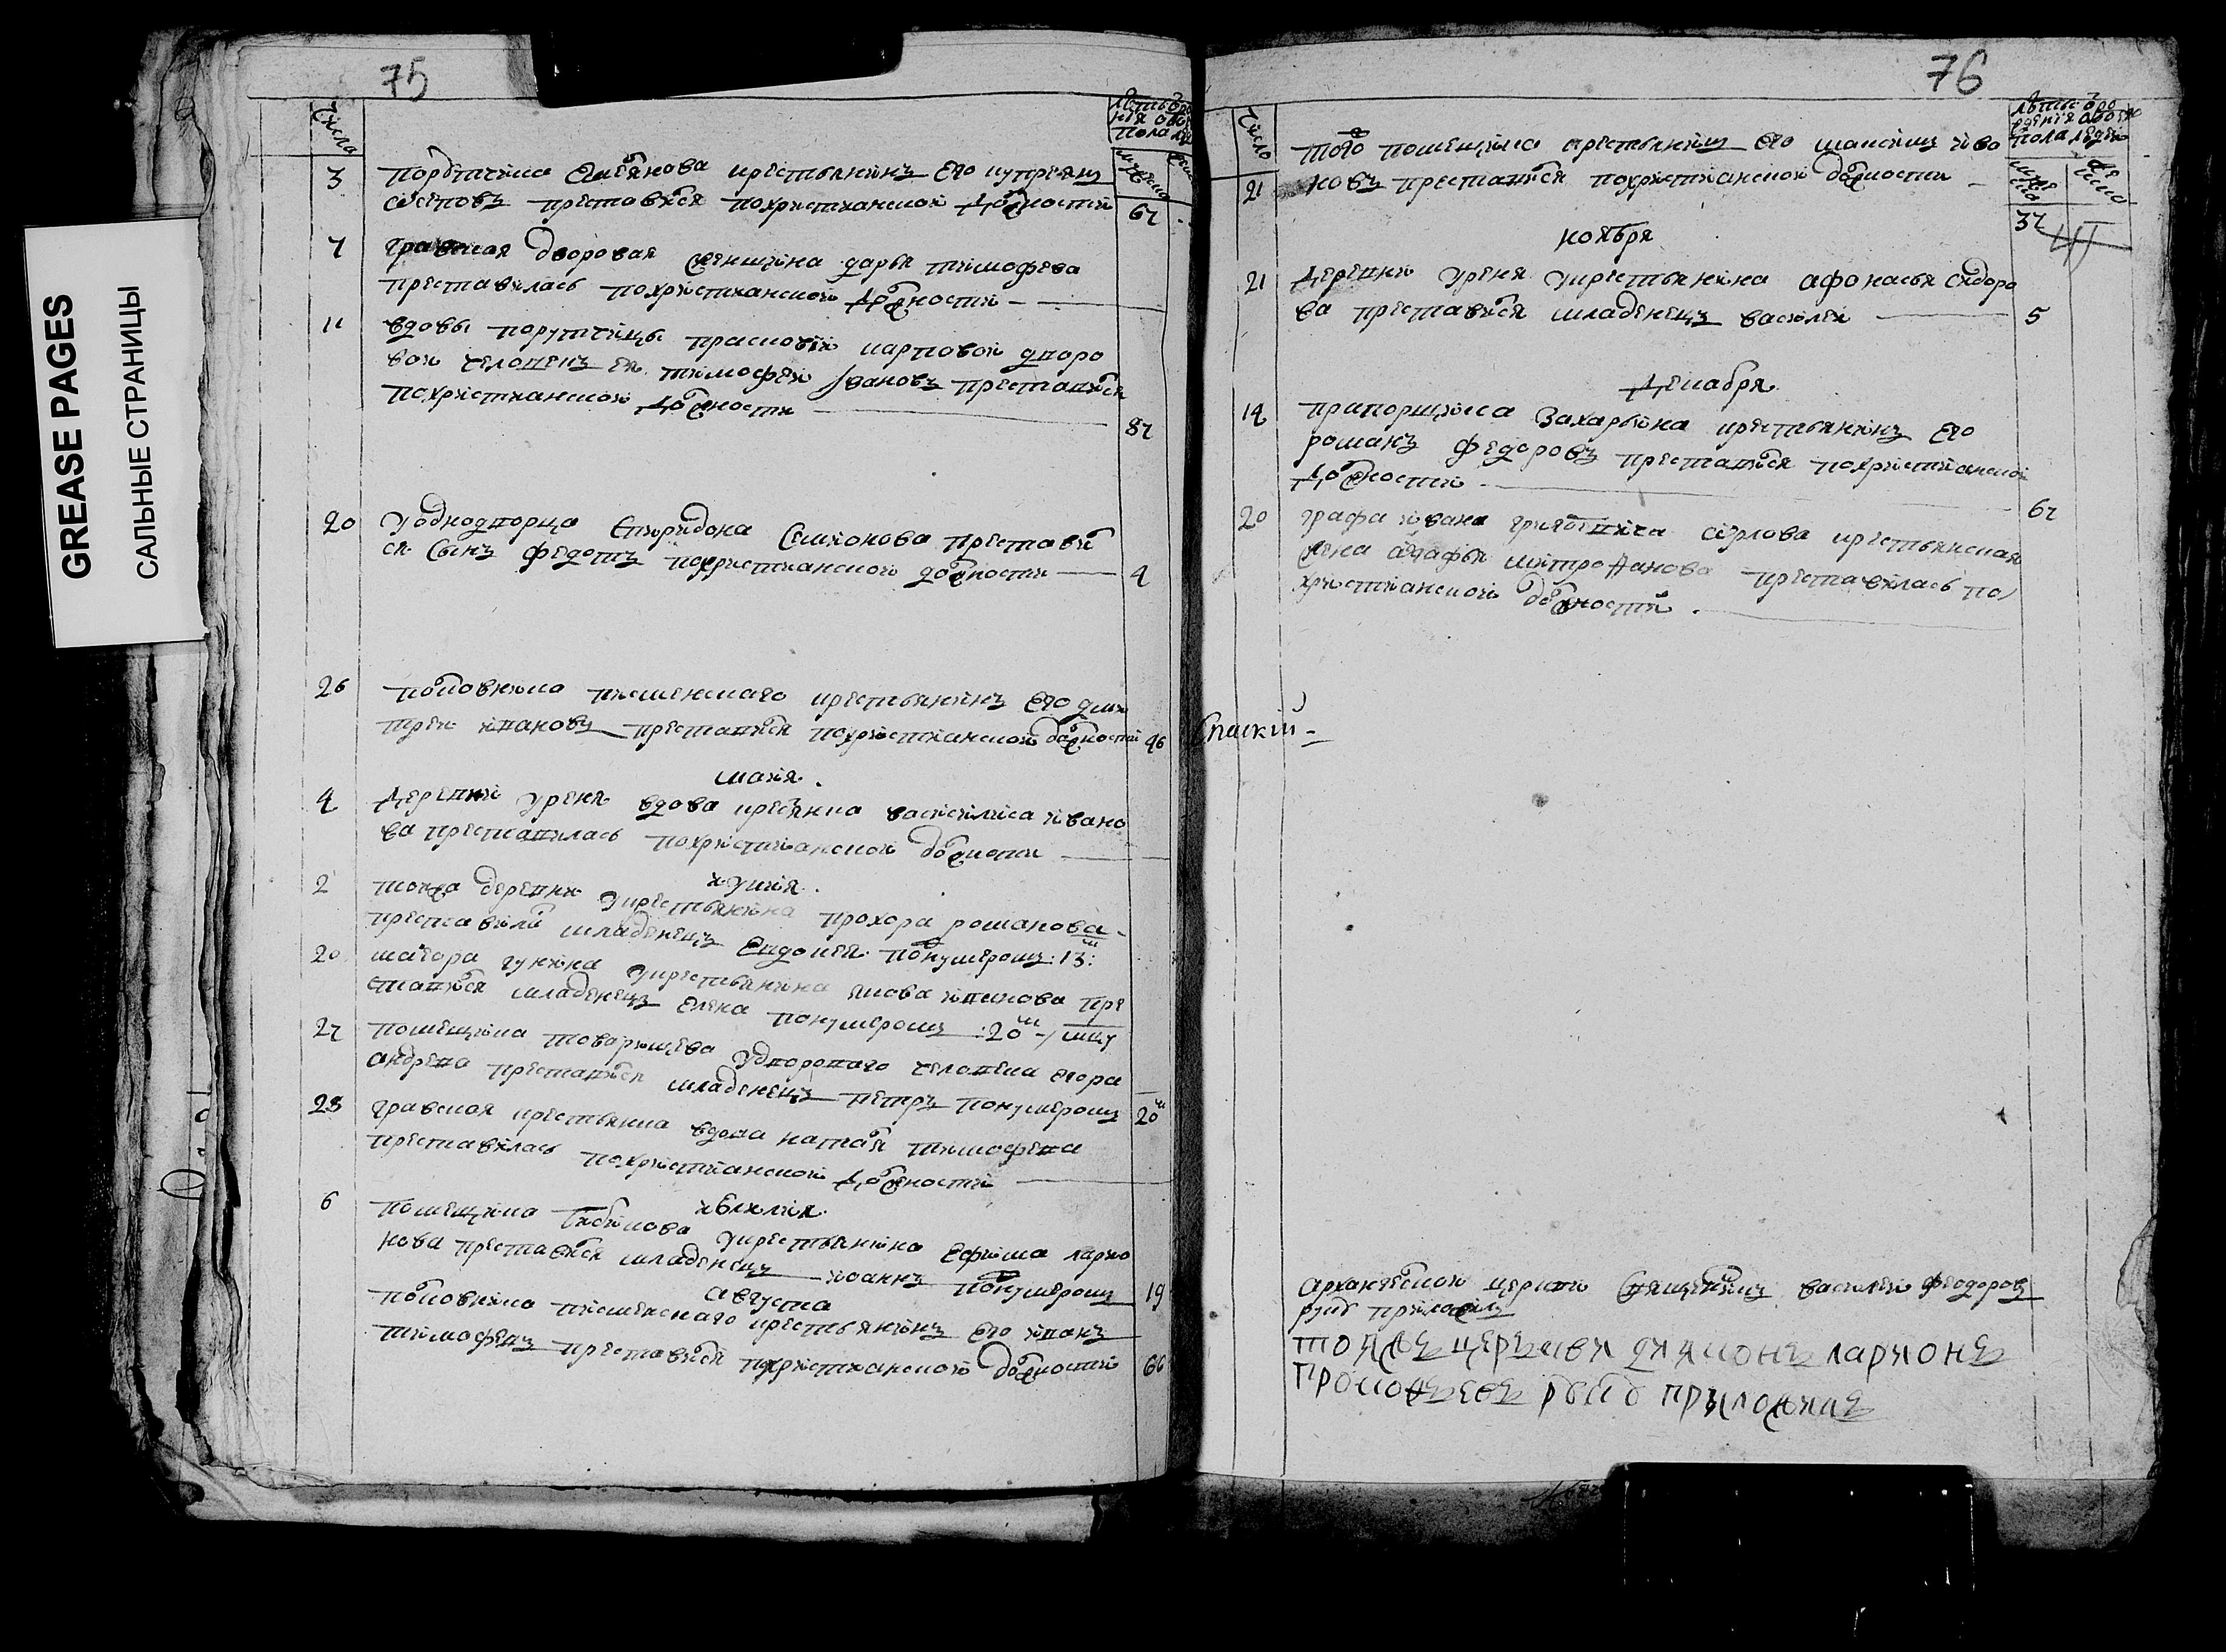 GREASE PAGES
САЛЬНЫЕ СТРАНИЦЫ
75
числа
3 порутчика крестьянинъ его куприянъ
преставился похристианской должности 67
7 графская дворовая женщина дарья тимофеева
преставилась похристианской должности
11 вдовы порутчицы прасковьи карповой дворо
вой человекъ ея тимофей Ивановъ преставился
похристианской должности 87
20 У однодворца Спиридона Семионова преставил
ся сынъ федотъ похристианской должности 4
26 крестьянинъ его дми
трей ивановъ преставился похристианской должности 46
майя
4 Деревни уреня вдова крестьянка василиса ивано
ва преставилась похристианской должности
июния
2 тояжа деревни укрестьянина прохора романова
преставился младенецъ Евдокея полумеромъ :13:
20 маеора гунина укрестьянина якова пре
ставился младенецъ елена полумеромъ :20
27 помещика товарищева удворового человека егора
андреева преставился младенецъ петръ полумеромъ 20
28 графская крестьянка вдова наталья тимофеева
преставилась похристианской должности
июлия
6 помещика укрестьянина Ефима ларио
нова преставился младенецъ иоаннъ полумеромъ 19
августа
крестьянинъ его иванъ
тимофеевъ преставился похристианской должности 66
76
число
летъ
пола людей
мужеска
женска
того помещика крестьянинъ его максимъ ива
21 новъ преставился похристианской должности 37
ноября
21 Деревни Уреня укрестьянина афонасья сидоро
ва преставился младенецъ василей 5
Декабря
14 прапорщика Захарьина крестьянинъ его
романъ федоровъ преставился похристианской
должности 67
20 графа ивана григорьевича орлова крестьянская
жена агафья митрофанова преставилась по
христианской должности
Спаский
архангельской церкви священникъ василей феодоровъ
руку приложилъ
тояжъ церкви дияконъ ларионъ
руку приложилъ